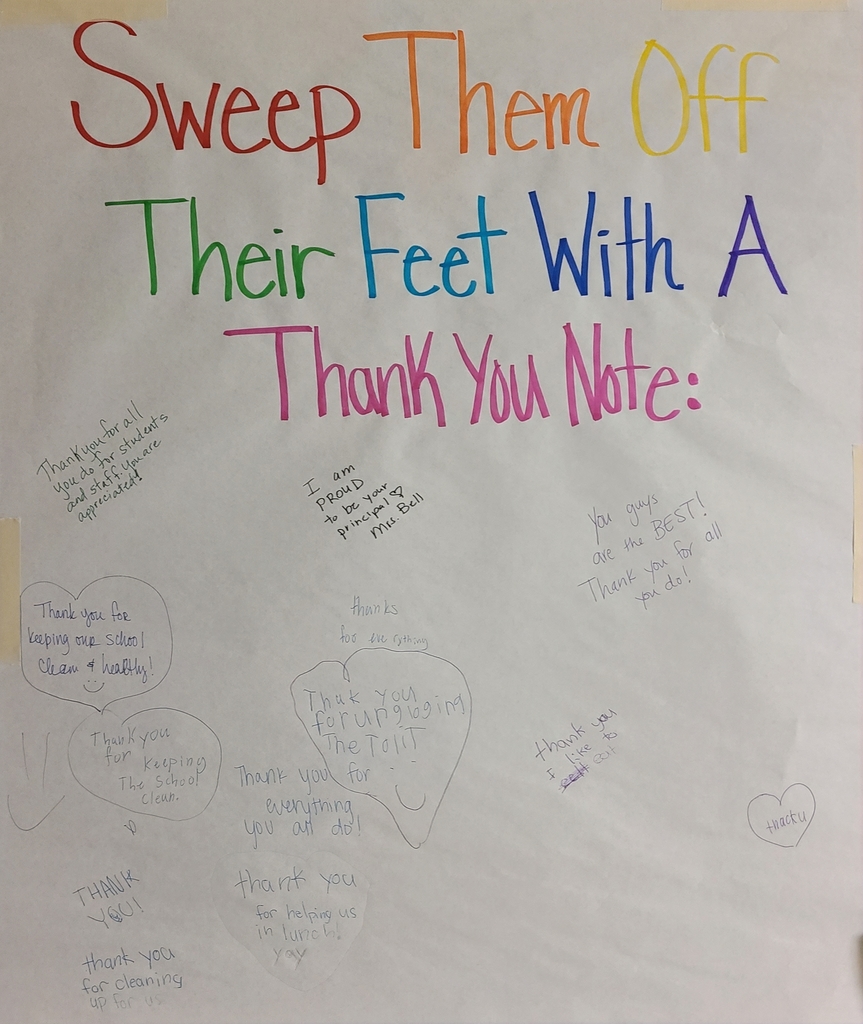 Sweep Them Off
Their Feet With A
Thank You Note:
Thank you for all
you do for students
and staff. you are
appreciated!
I am
PROUD
to be your
principal ♡
Mrs. Bell
You guys
are the BEST!
Thank you for all
you do!
Thank you for
keeping our school
clean & healthy!
thanks
for everything
Thak you
for ungloging
The TolIT
Thank you
for keeping
The School
Clean.
thank you
I like to
eat
Thank you for
everything
you all do!
thacku
THANK
YOU!
thank you
for helping us
in lunch!
yay
thank you
for cleaning
up for us